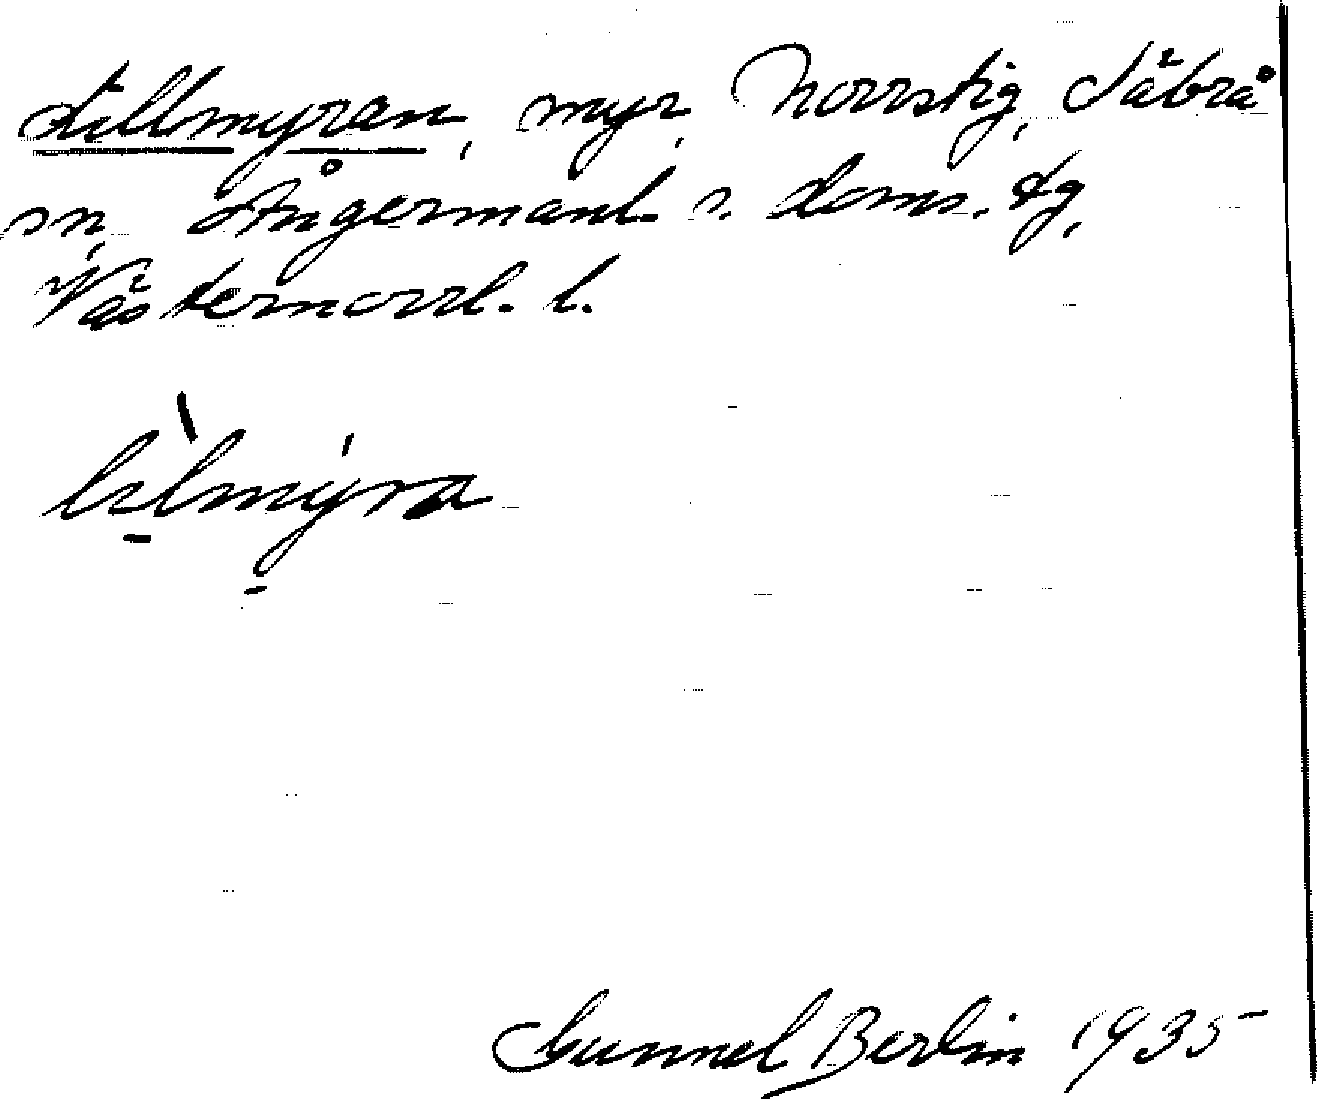 Lillmyran, myr, Norrstig, Säbrå
sn, Ångermanl. s. doms. tg,
Västernorrl. l.
lìlmýra
Gunnel Berlin 1935